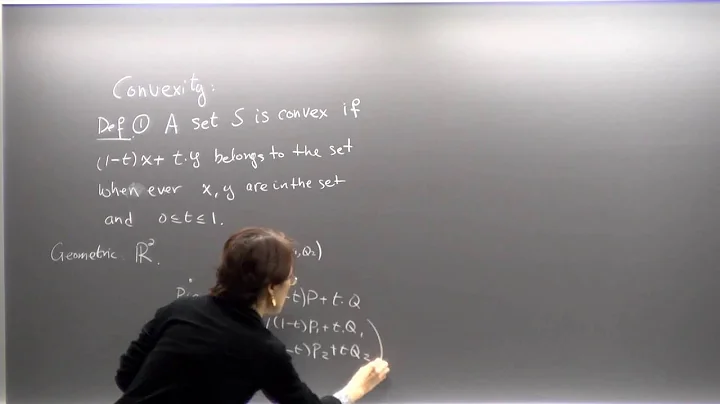 Convexity:
Def. ① A set S is convex if
(1-t)x + t·y belongs to the set
when ever x, y are in the set
and 0≤t≤1.
Geometric ℝ² , Q₂)
-t)P + t·Q
(1-t)P₁ + t·Q₁
-t)P₂ + tQ₂